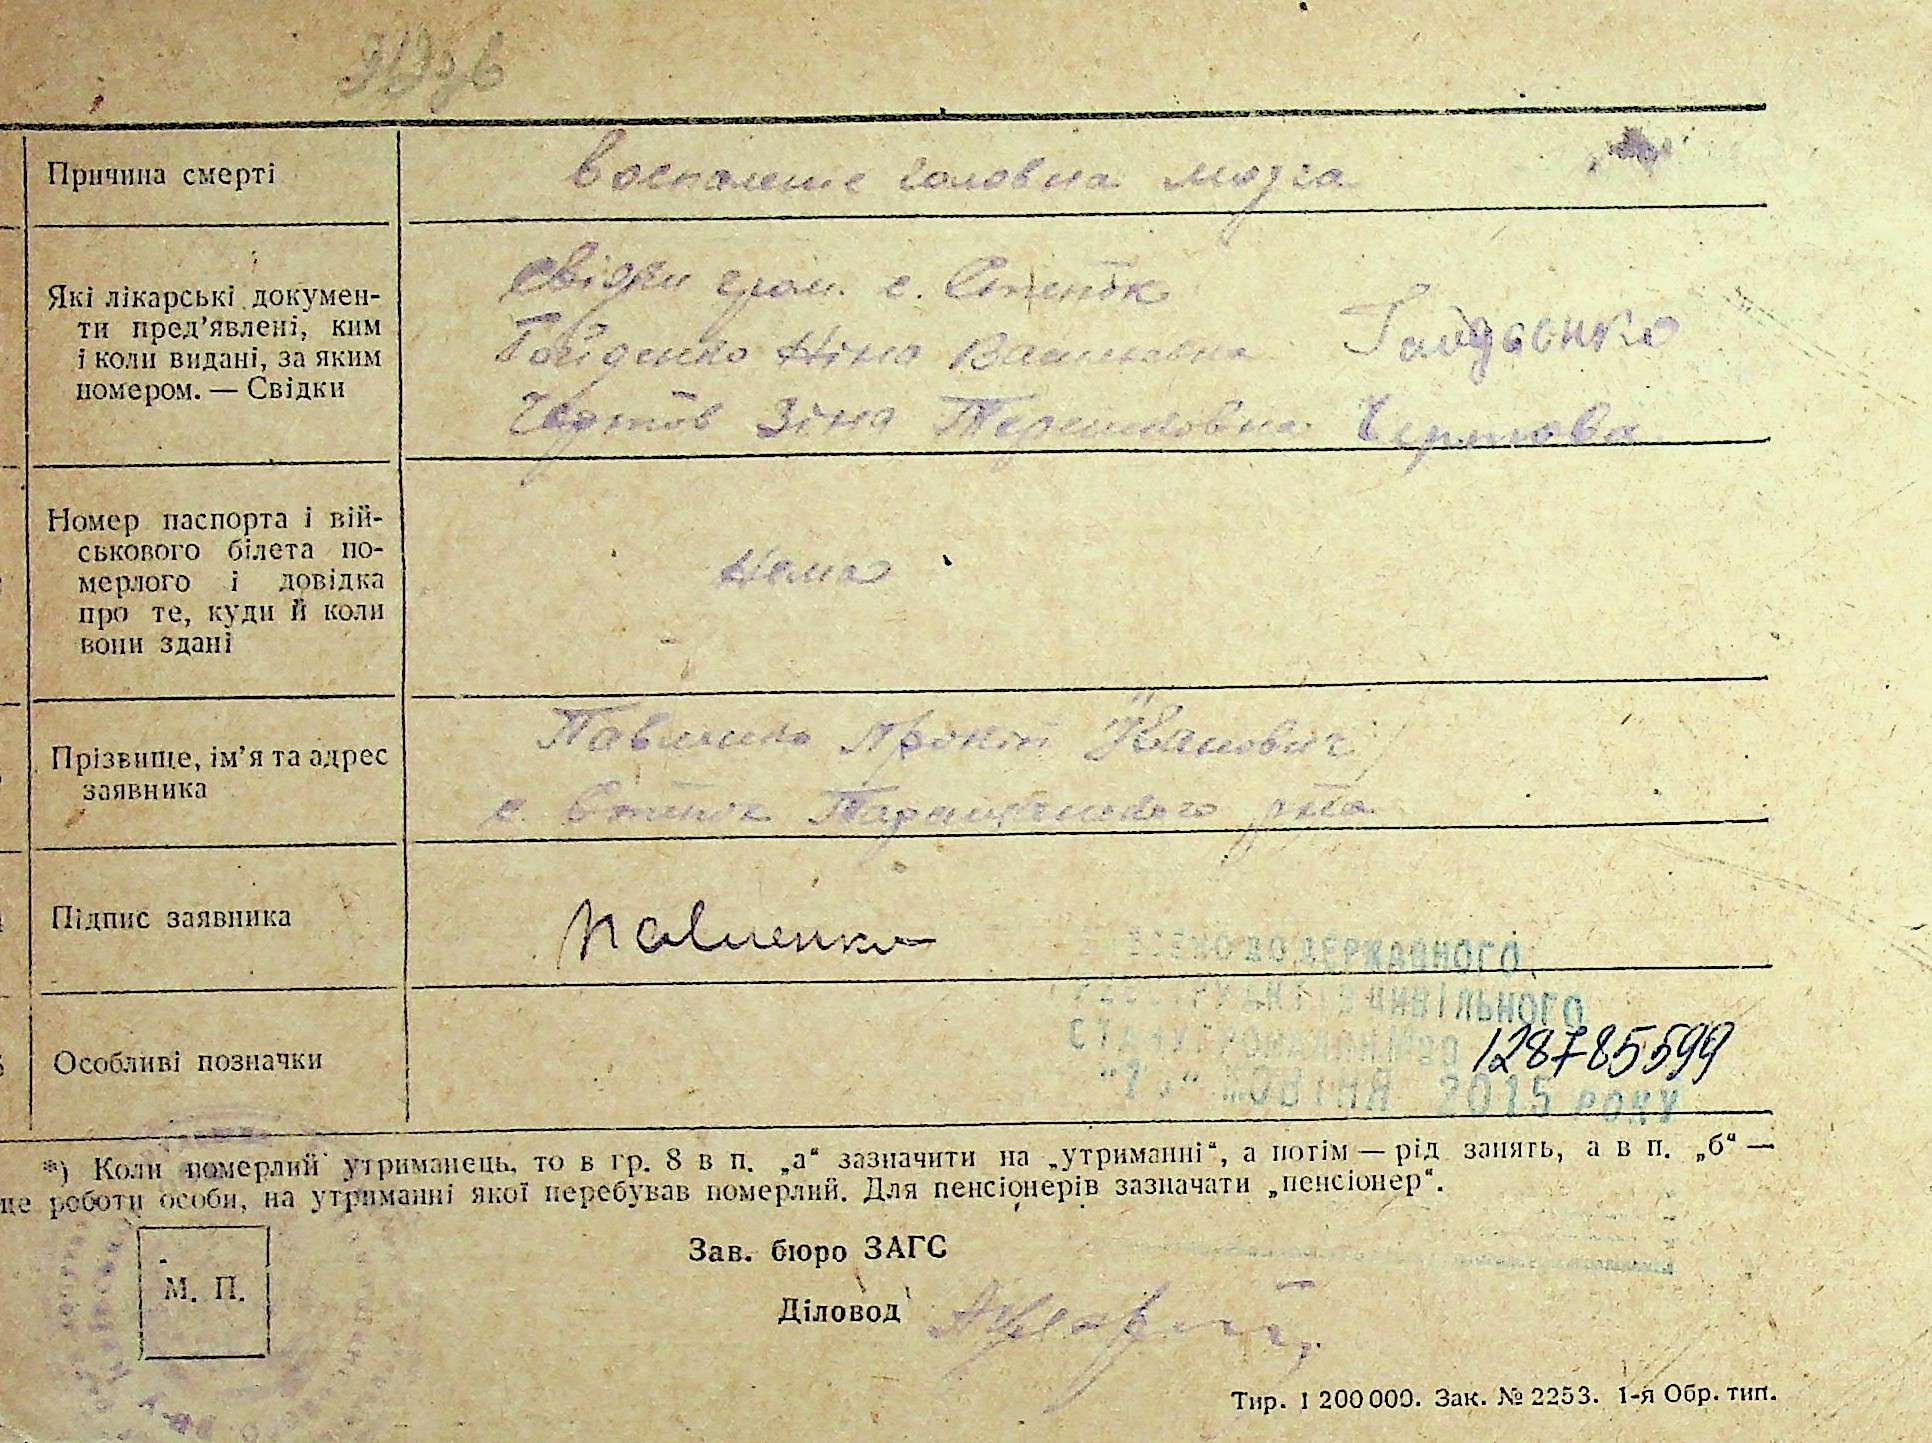 Причина смерті
воспаление головна мозга
Які лікарські докумен-
ти пред’явлені, ким
і коли видані, за яким
номером. — Свідки
свідки гром. с. Степок
Гайденко Ніна
Гайденко
Чертов Зіна Терешковна Чертова
Номер паспорта і вій-
ськового білета по-
мерлого і довідка
про те, куди й коли
вони здані
Нема
Прізвище, ім’я та адрес
заявника
Павленко Прокіп Іванович
с. Степок р-на
Підпис заявника
Павленко
ДО ДЕРЖАВНОГО
ЦИВІЛЬНОГО
СТАНУ ГРОМАДЯН
128785599
ЖОВТНЯ 2015 РОКУ
Особливі позначки
*) Коли померлий утриманець, то в гр. 8 в п. „а“ зазначити на „утриманні“, а потім — рід занять, а в п. „б“ —
це роботи особи, на утриманні якої перебував померлий. Для пенсіонерів зазначати „пенсіонер“.
М. П.
Зав. бюро ЗАГС
Діловод
Тир. 1 200 000. Зак. № 2253. 1-я Обр. тип.